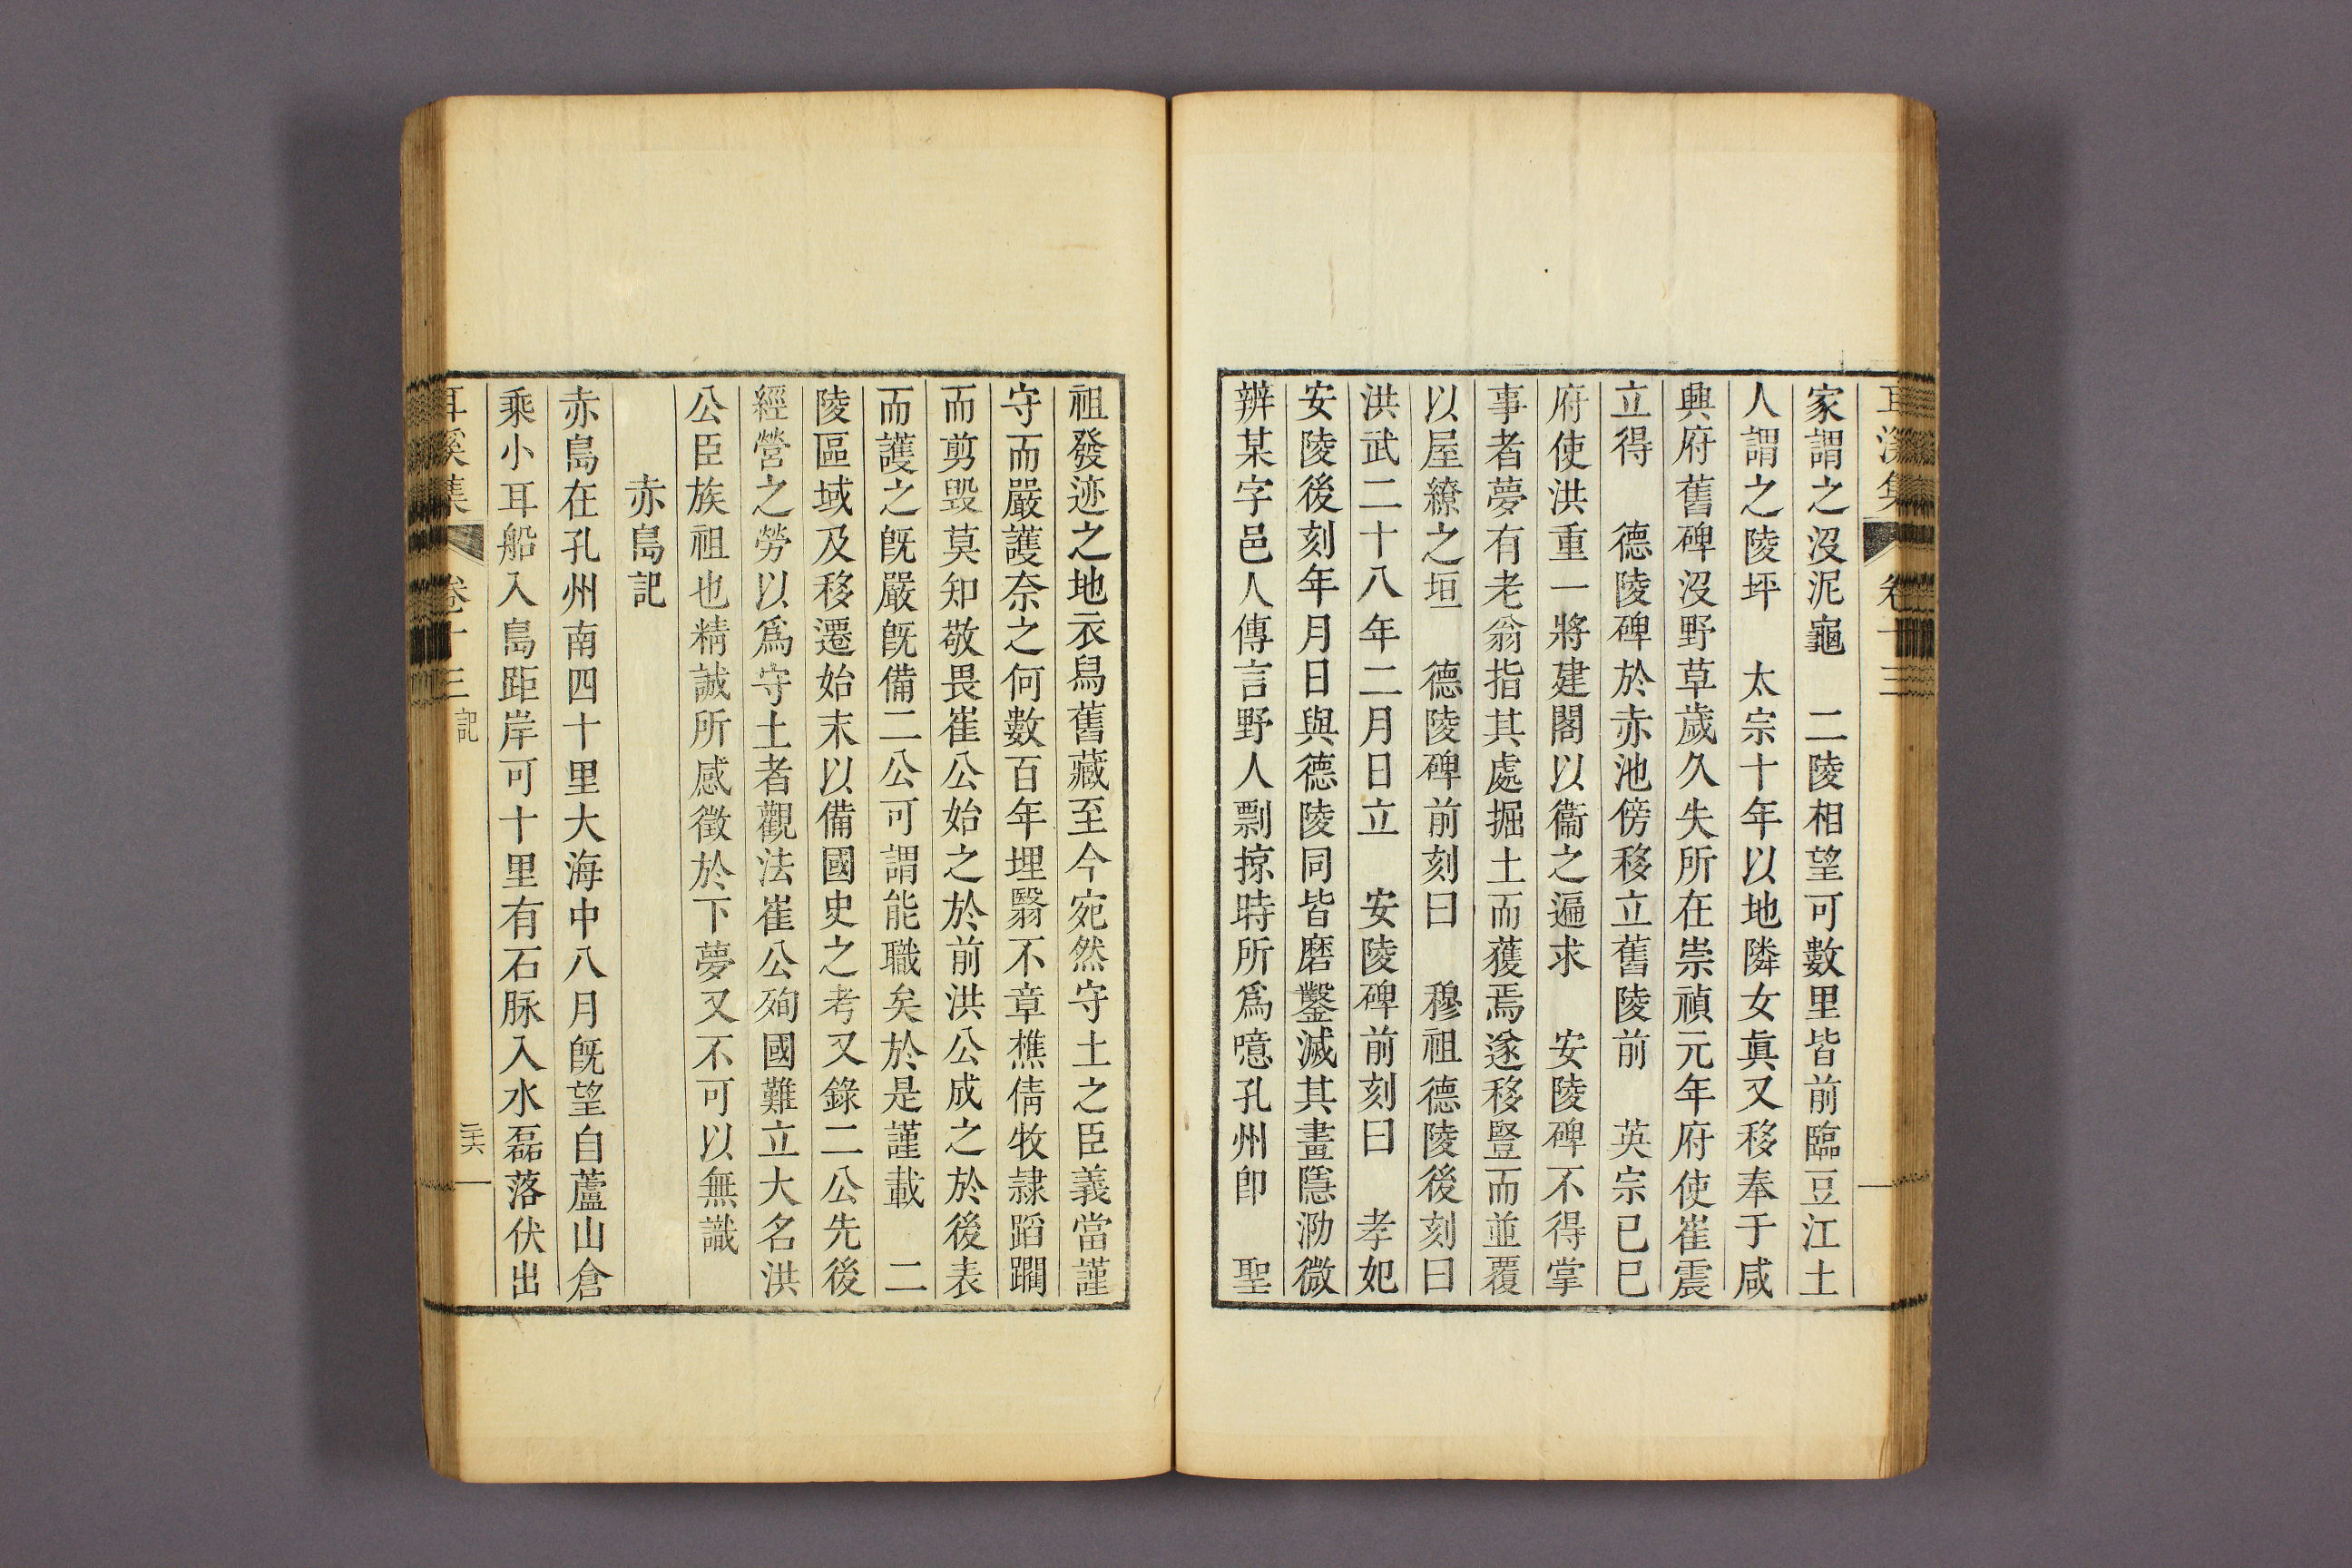 耳溪集 卷十三
家謂之沒泥龜 二陵相望可數里皆前臨豆江土
人謂之陵坪 太宗十年以地隣女眞又移奉于咸
興府舊碑沒野草歲久失所在崇禎元年府使崔震
立得 德陵碑於赤池傍移立舊陵前 英宗已巳
府使洪重一將建閣以衞之遍求 安陵碑不得掌
事者夢有老翁指其處掘土而獲焉遂移豎而並覆
以屋繚之垣 德陵碑前刻曰 穆祖德陵後刻曰
洪武二十八年二月日立 安陵碑前刻曰 孝妃
安陵後刻年月日與德陵同皆磨鑿滅其畫隱泐微
辨某字邑人傳言野人剽掠時所爲噫孔州卽 聖
祖發迹之地衣舃舊藏至今宛然守土之臣義當謹
守而嚴護奈之何數百年埋翳不章樵倩牧隷蹈躙
而剪毁莫知敬畏崔公始之於前洪公成之於後表
而護之旣嚴旣備二公可謂能職矣於是謹載 二
陵區域及移遷始末以備國史之考又錄二公先後
經營之勞以爲守土者觀法崔公殉國難立大名洪
公臣族祖也精誠所感徵於下夢又不可以無識
赤島記
赤島在孔州南四十里大海中八月旣望自蘆山倉
乘小耳船入島距岸可十里有石脉入水磊落伏出
耳溪集 卷十三 記 二十六